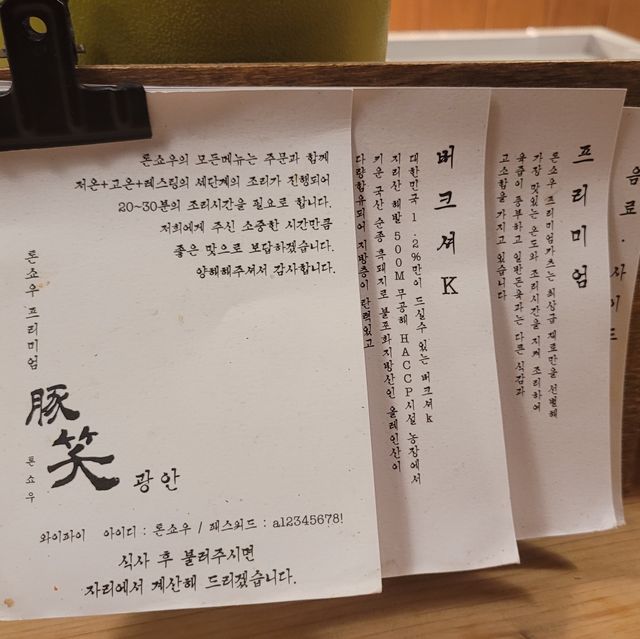 톤쇼우의 모든메뉴는 주문과 함께
저온+고온+레스팅의 세단계의 조리가 진행되어
20~30분의 조리시간을 필요로 합니다.
저희에게 주신 소중한 시간만큼
좋은 맛으로 보답하겠습니다.
양해해주셔서 감사합니다.
톤쇼우 프리미엄
豚笑
톤쇼우
광안
와이파이 아이디 : 톤쇼우 / 패스워드 : a12345678!
식사 후 불러주시면
자리에서 계산해 드리겠습니다.
버크셔K
대한민국 1.2%만이 드실수 있는 버크셔k
지리산 해발 500M 무공해 HACCP시설 농장에서
키운 국산 순종 흑돼지로 불포화지방산인 올레인산이
다량함유되어 지방층이 탄력있고
프리미엄
톤쇼우 프리미엄카츠는 최상급 재료만을 선별해
가장 맛있는 온도와 조리시간을 지켜 조리하여
육즙이 풍부하고 일반돈육과는 다른 식감과
고소함을 가지고 있습니다
음료.사이드